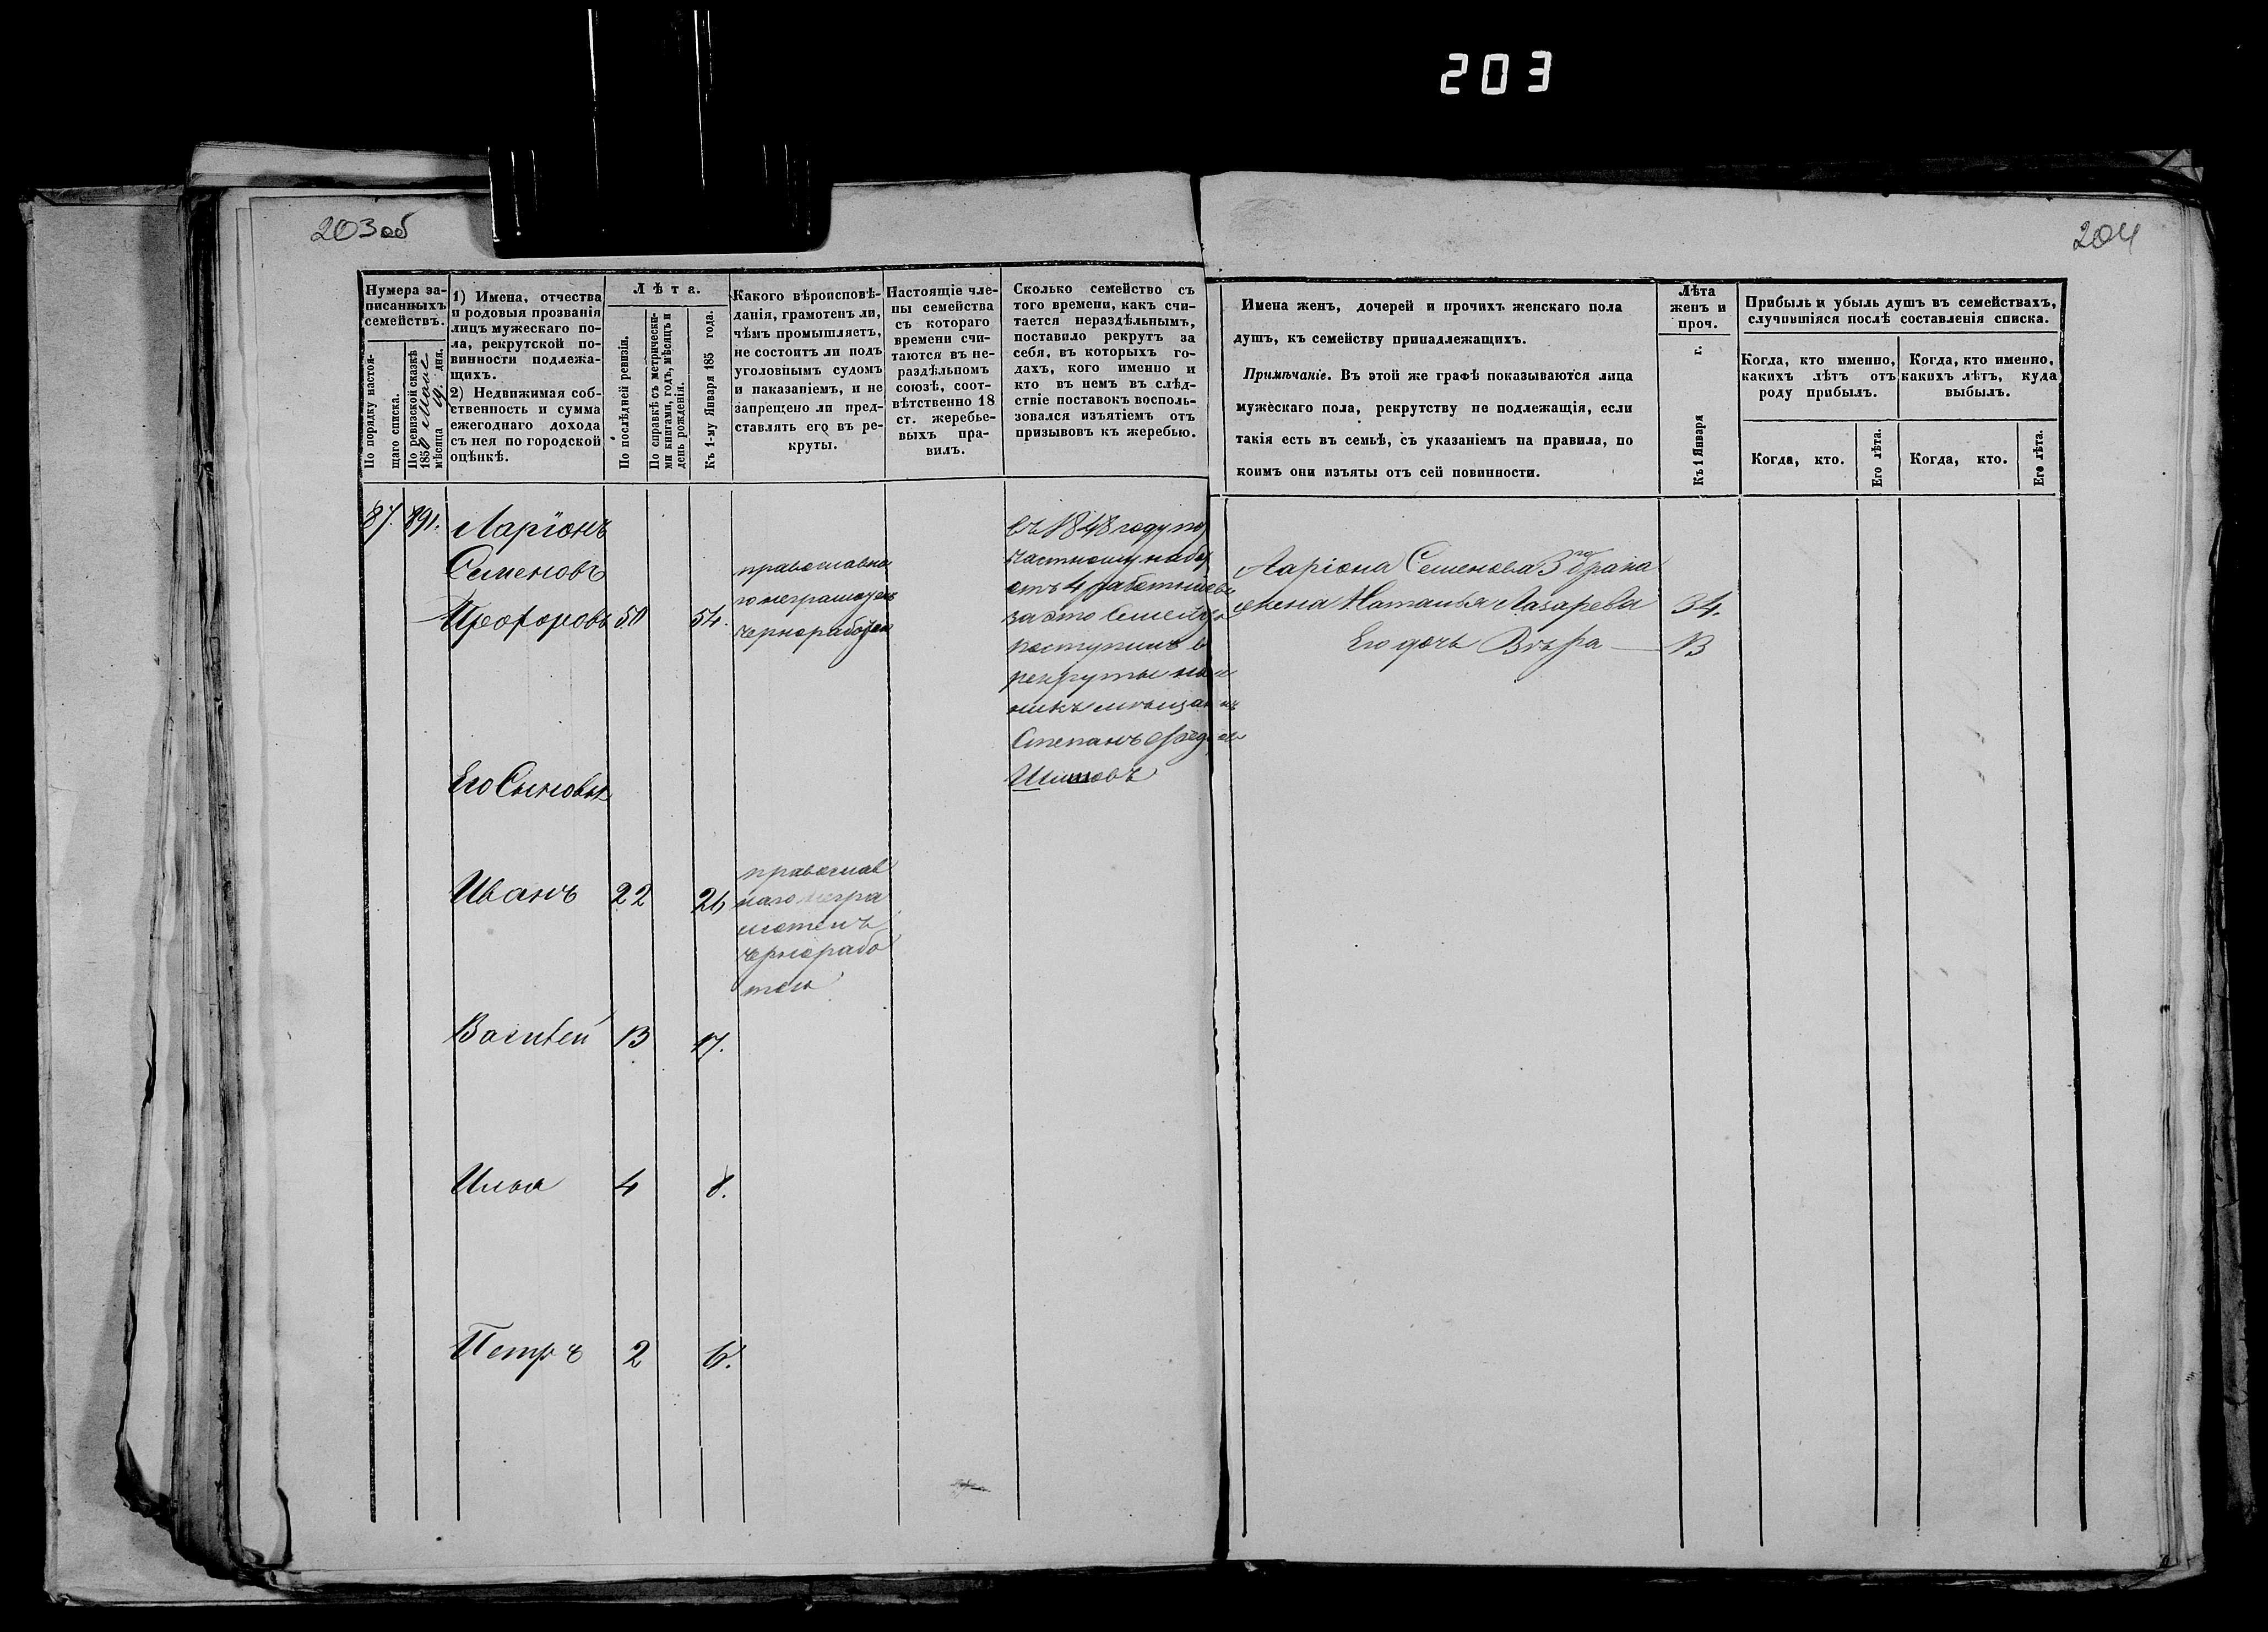 203
203об
204
Нумера записанныхъ семействъ.
По порядку настоящаго списка.
По ревизской сказкѣ 1850 мѣсяца 19. дня.
1) Имена, отчества
и родовыя прозванія
лицъ мужескаго по-
ла, рекрутской по-
винности подлежа-
щихъ.
2) Недвижимая соб-
ственность и сумма
ежегоднаго дохода
съ нея по городской
оцѣнкѣ.
Лѣта.
По послѣдней ревизіи.
По справкѣ съ метрически-
ми книгами, годъ, мѣсяцъ и
день рожденія.
Къ 1-му Января 185 года.
Какого вѣроисповѣ-
данія, грамотенъ ли,
чѣмъ промышляетъ,
не состоитъ ли подъ
уголовнымъ судомъ
и наказаніемъ, и не
запрещено ли пред-
ставлять его въ ре-
круты.
Настоящіе чле-
ны семейства
съ котораго
времени счи-
таются въ не-
раздѣльномъ
союзѣ, соот-
вѣтственно 18
ст. жеребье-
выхъ пра-
вилъ.
Сколько семейство съ
того времени, какъ счи-
тается нераздѣльнымъ,
поставило рекрутъ за
себя, въ которыхъ го-
дахъ, кого именно и
кто въ немъ въ слѣд-
ствіе поставокъ восполь-
зовался изъятіемъ отъ
призывовъ къ жеребью.
Имена женъ, дочерей и прочихъ женскаго пола
душъ, къ семейству принадлежащихъ.
Примѣчаніе. Въ этой же графѣ показываются лица
мужескаго пола, рекрутству не подлежащія, если
такія есть въ семьѣ, съ указаніемъ на правила, по
коимъ они изъяты отъ сей повинности.
Лѣта
женъ и
проч.
Къ 1 Января г.
Прибыль и убыль душъ въ семействахъ,
случившіяся послѣ составленія списка.
Когда, кто именно,
какихъ лѣтъ отъ
роду прибылъ.
Когда, кто именно,
какихъ лѣтъ, куда
выбылъ.
Когда, кто.
Его лѣта.
Когда, кто.
Его лѣта.
87. 891. Ларіонъ
Семеновъ
50 54.
православна
го неграмотенъ
чернорабочей
въ 1848 году по
частному набо
отъ 4 работниковъ
за это Семейство
поступилъ в
рекруты
Степанъ
Ларіона Семенова 3го брака
жена Наталья Лазарева 34.
Его дочь Вѣра — 13
Его Сыновья
Иванъ 22 26
православ
наго негра
мотенъ
чернорабо
чей
Василей 13 17.
Илья 4 8.
Петръ 2 6.